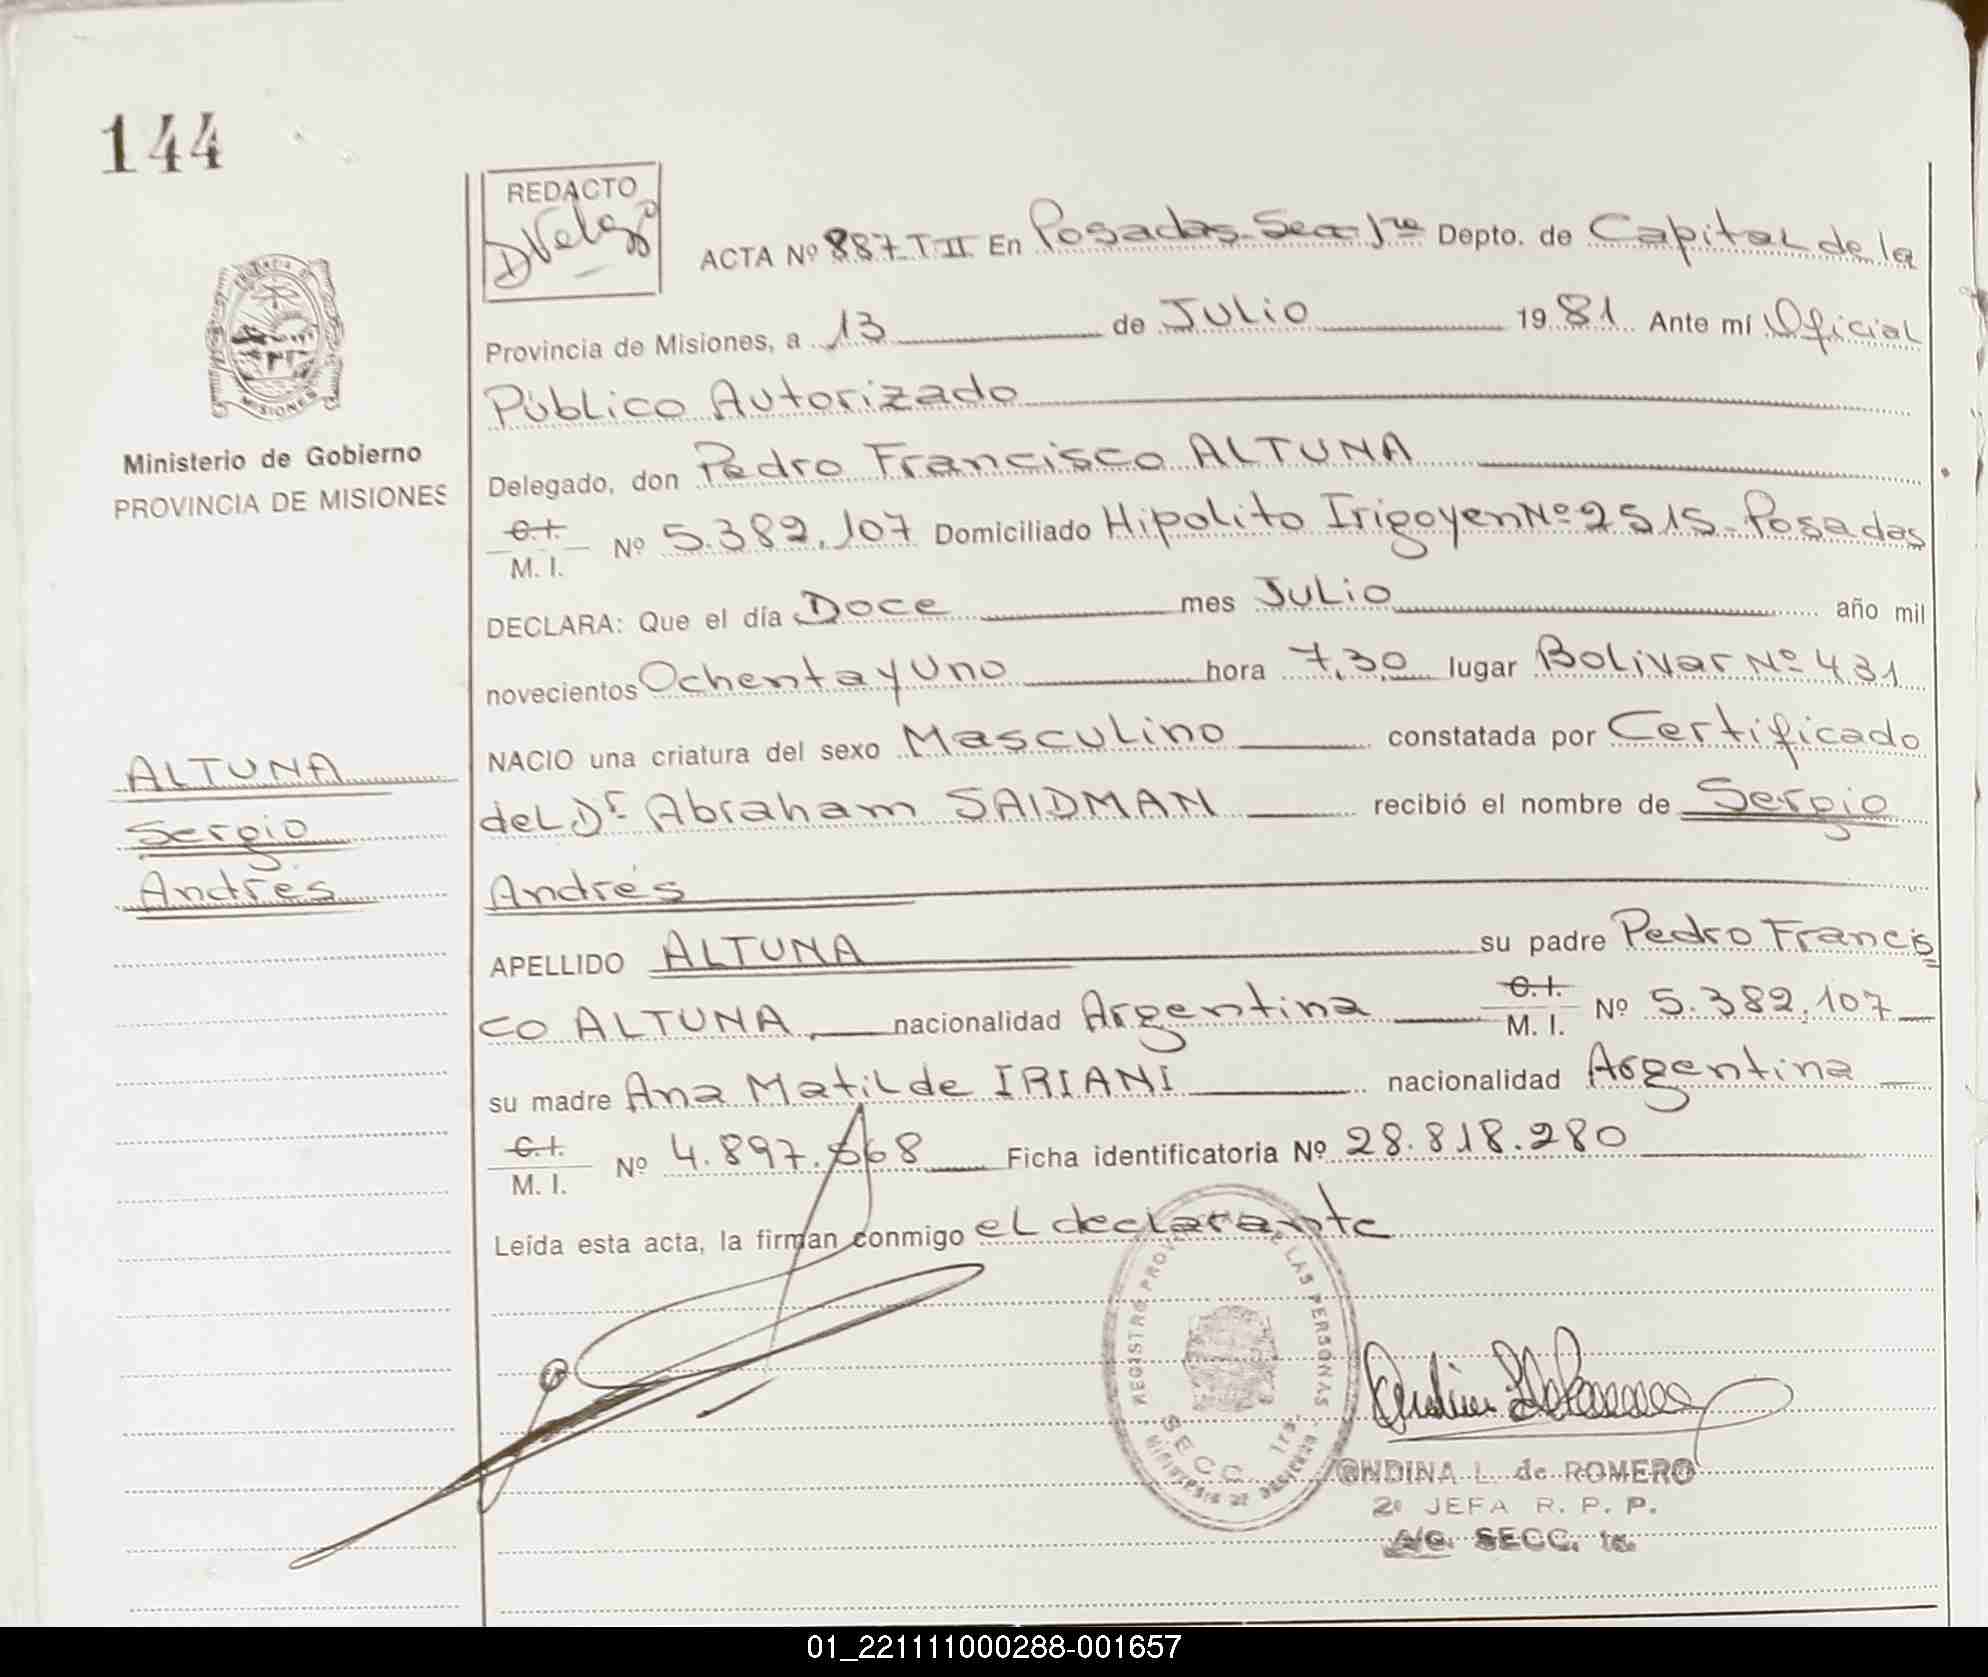 144
REDACTO
DVelazo
ACTA Nº 887 T II En Posadas-Secc 1ra Depto. de Capital de la
Provincia de Misiones, a 13 de Julio 1981 Ante mí Oficial
Público Autorizado
Ministerio de Gobierno
PROVINCIA DE MISIONES
Delegado, don Pedro Francisco ALTUNA
C.I.
M. I. Nº 5.382.107 Domiciliado Hipolito Irigoyen Nº 2515-Posadas
DECLARA: Que el día Doce mes Julio año mil
novecientos Ochenta y Uno hora 7,30 lugar Bolivar Nº 431
NACIO una criatura del sexo Masculino constatada por Certificado
del Dr Abraham SAIDMAN recibió el nombre de Sergio
Andrés
ALTUNA
Sergio
Andrés
APELLIDO ALTUNA su padre Pedro Francis
co ALTUNA, nacionalidad Argentina C.I.
M. I. Nº 5.382.107
su madre Ana Matilde IRIANI nacionalidad Argentina
C.I.
M. I. Nº 4.897.668 Ficha identificatoria Nº 28.818.280
Leída esta acta, la firman conmigo el declarante
REGISTRO PROV LAS PERSONAS
SECC 1ra
MINISTERIO DE
ONDINA L. de ROMERO
2º JEFA R. P. P.
A/C. SECC. 1a.
01_221111000288-001657